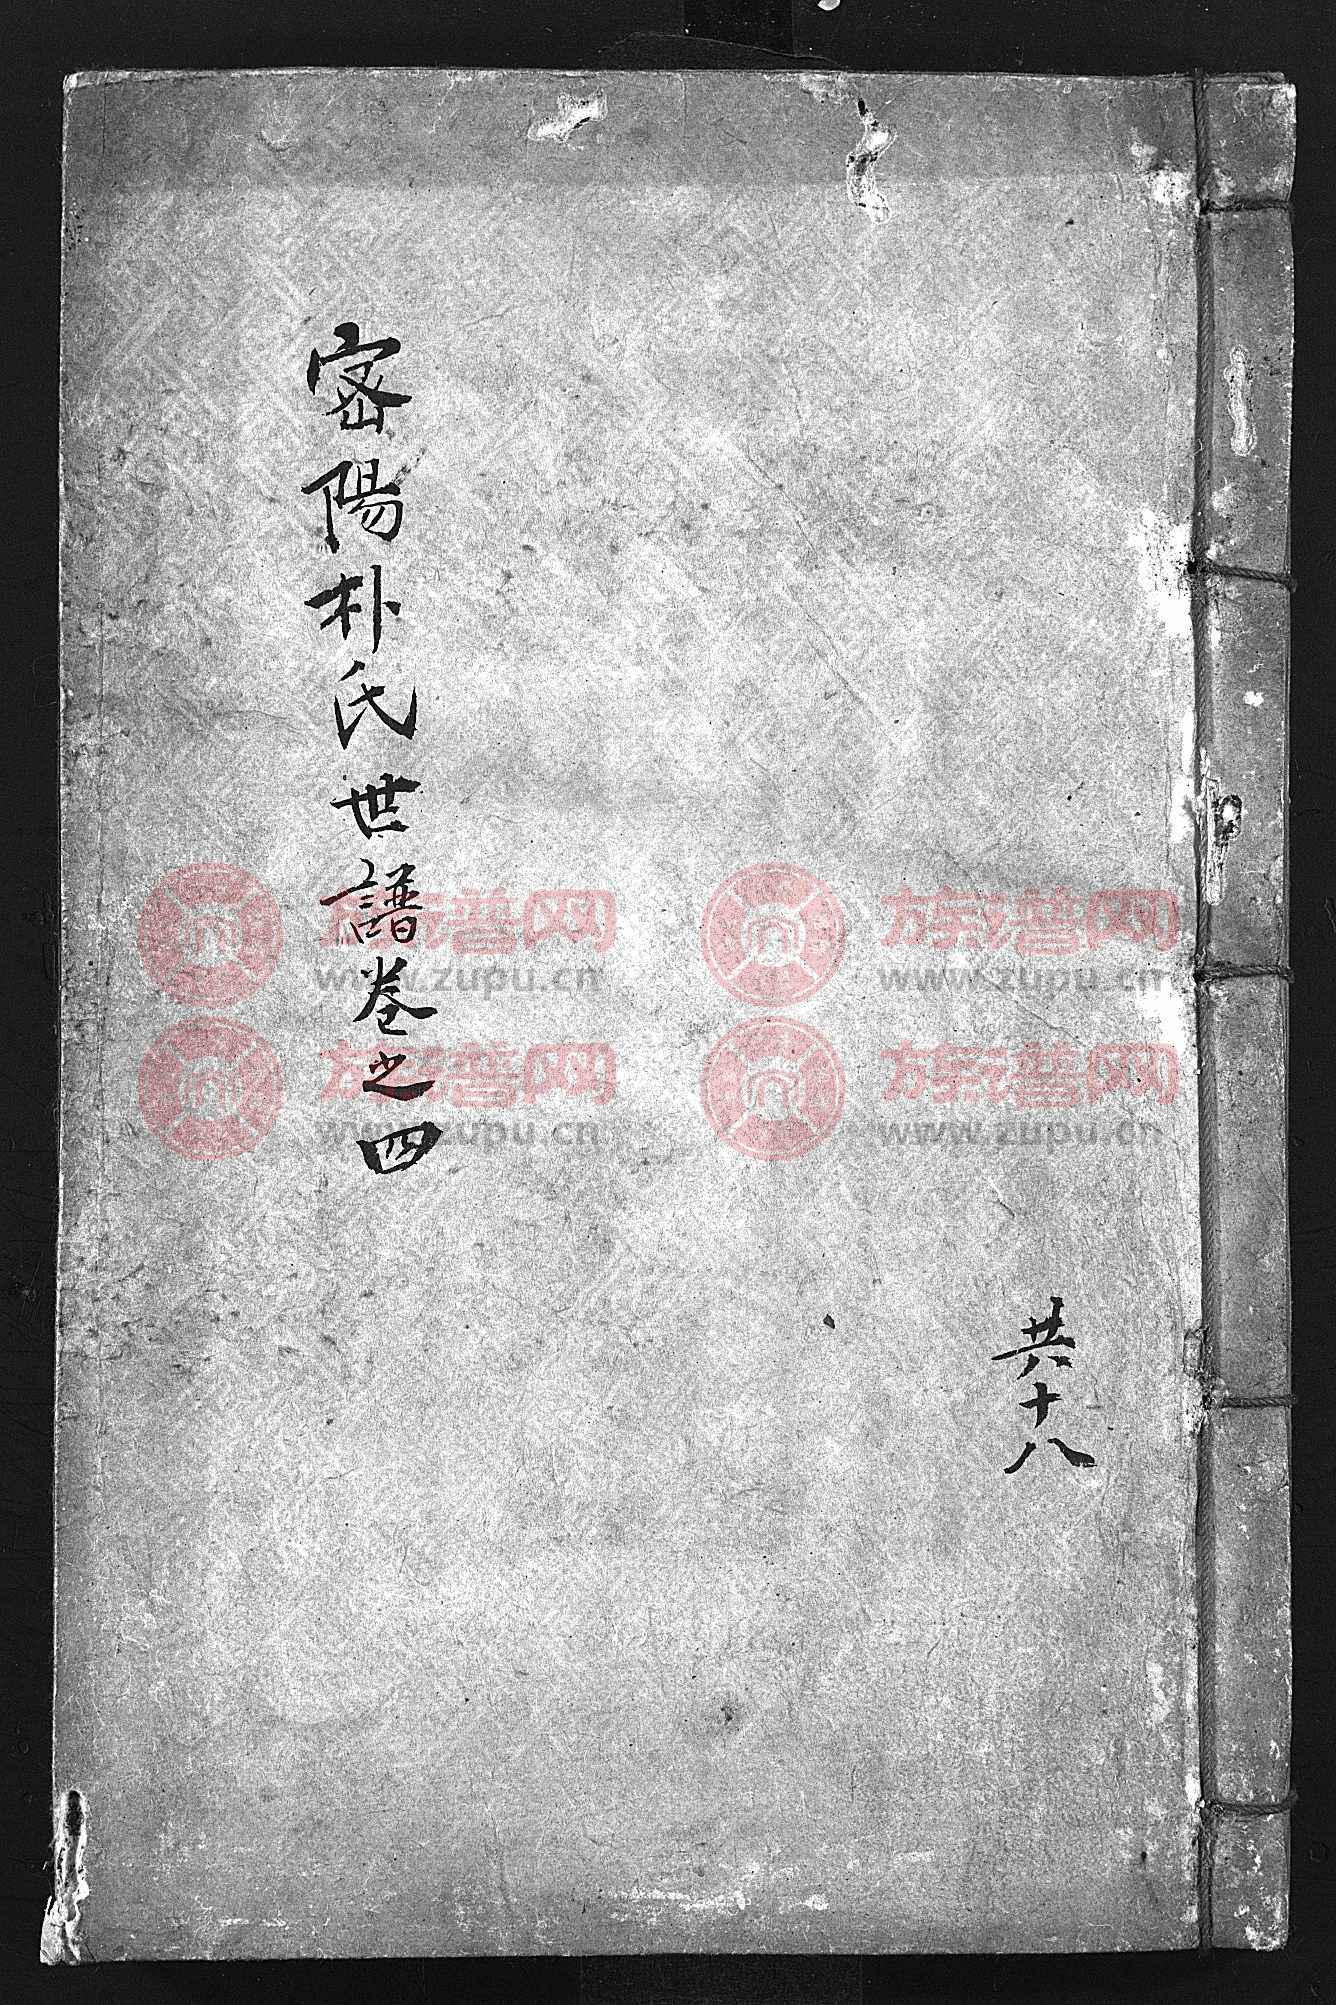 共十八
密陽朴氏世譜卷之四
族谱网 族谱网
www.zupu.cn www.zupu.cn
族谱网 族谱网
www.zupu.cn www.zupu.cn